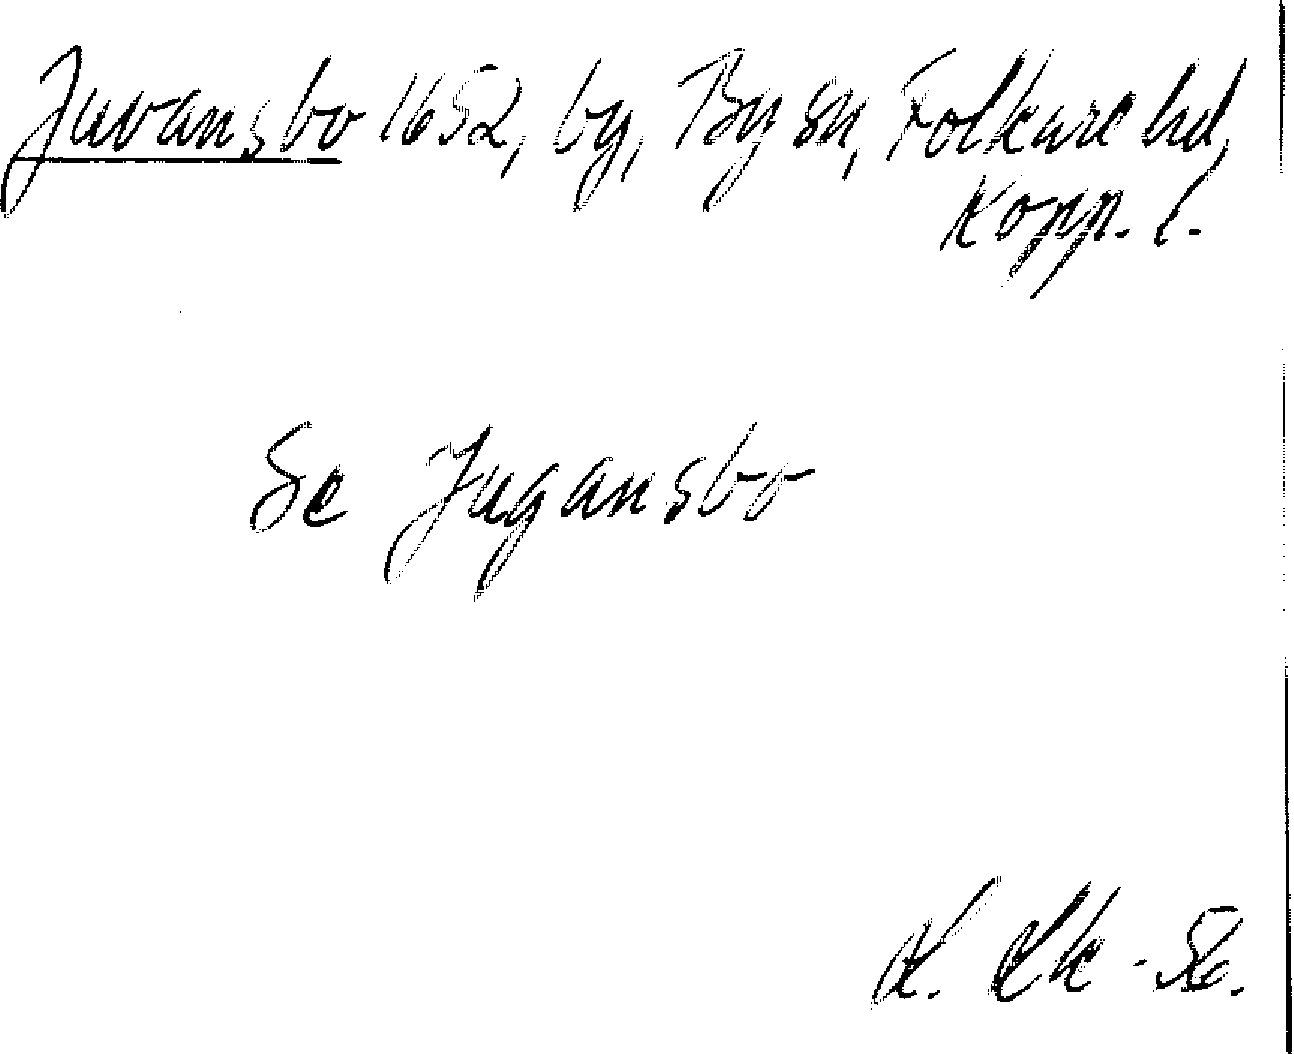 Juvansbo 1652, by, By sn, Folkare hd,
Kopp. l.
Se Jugansbo